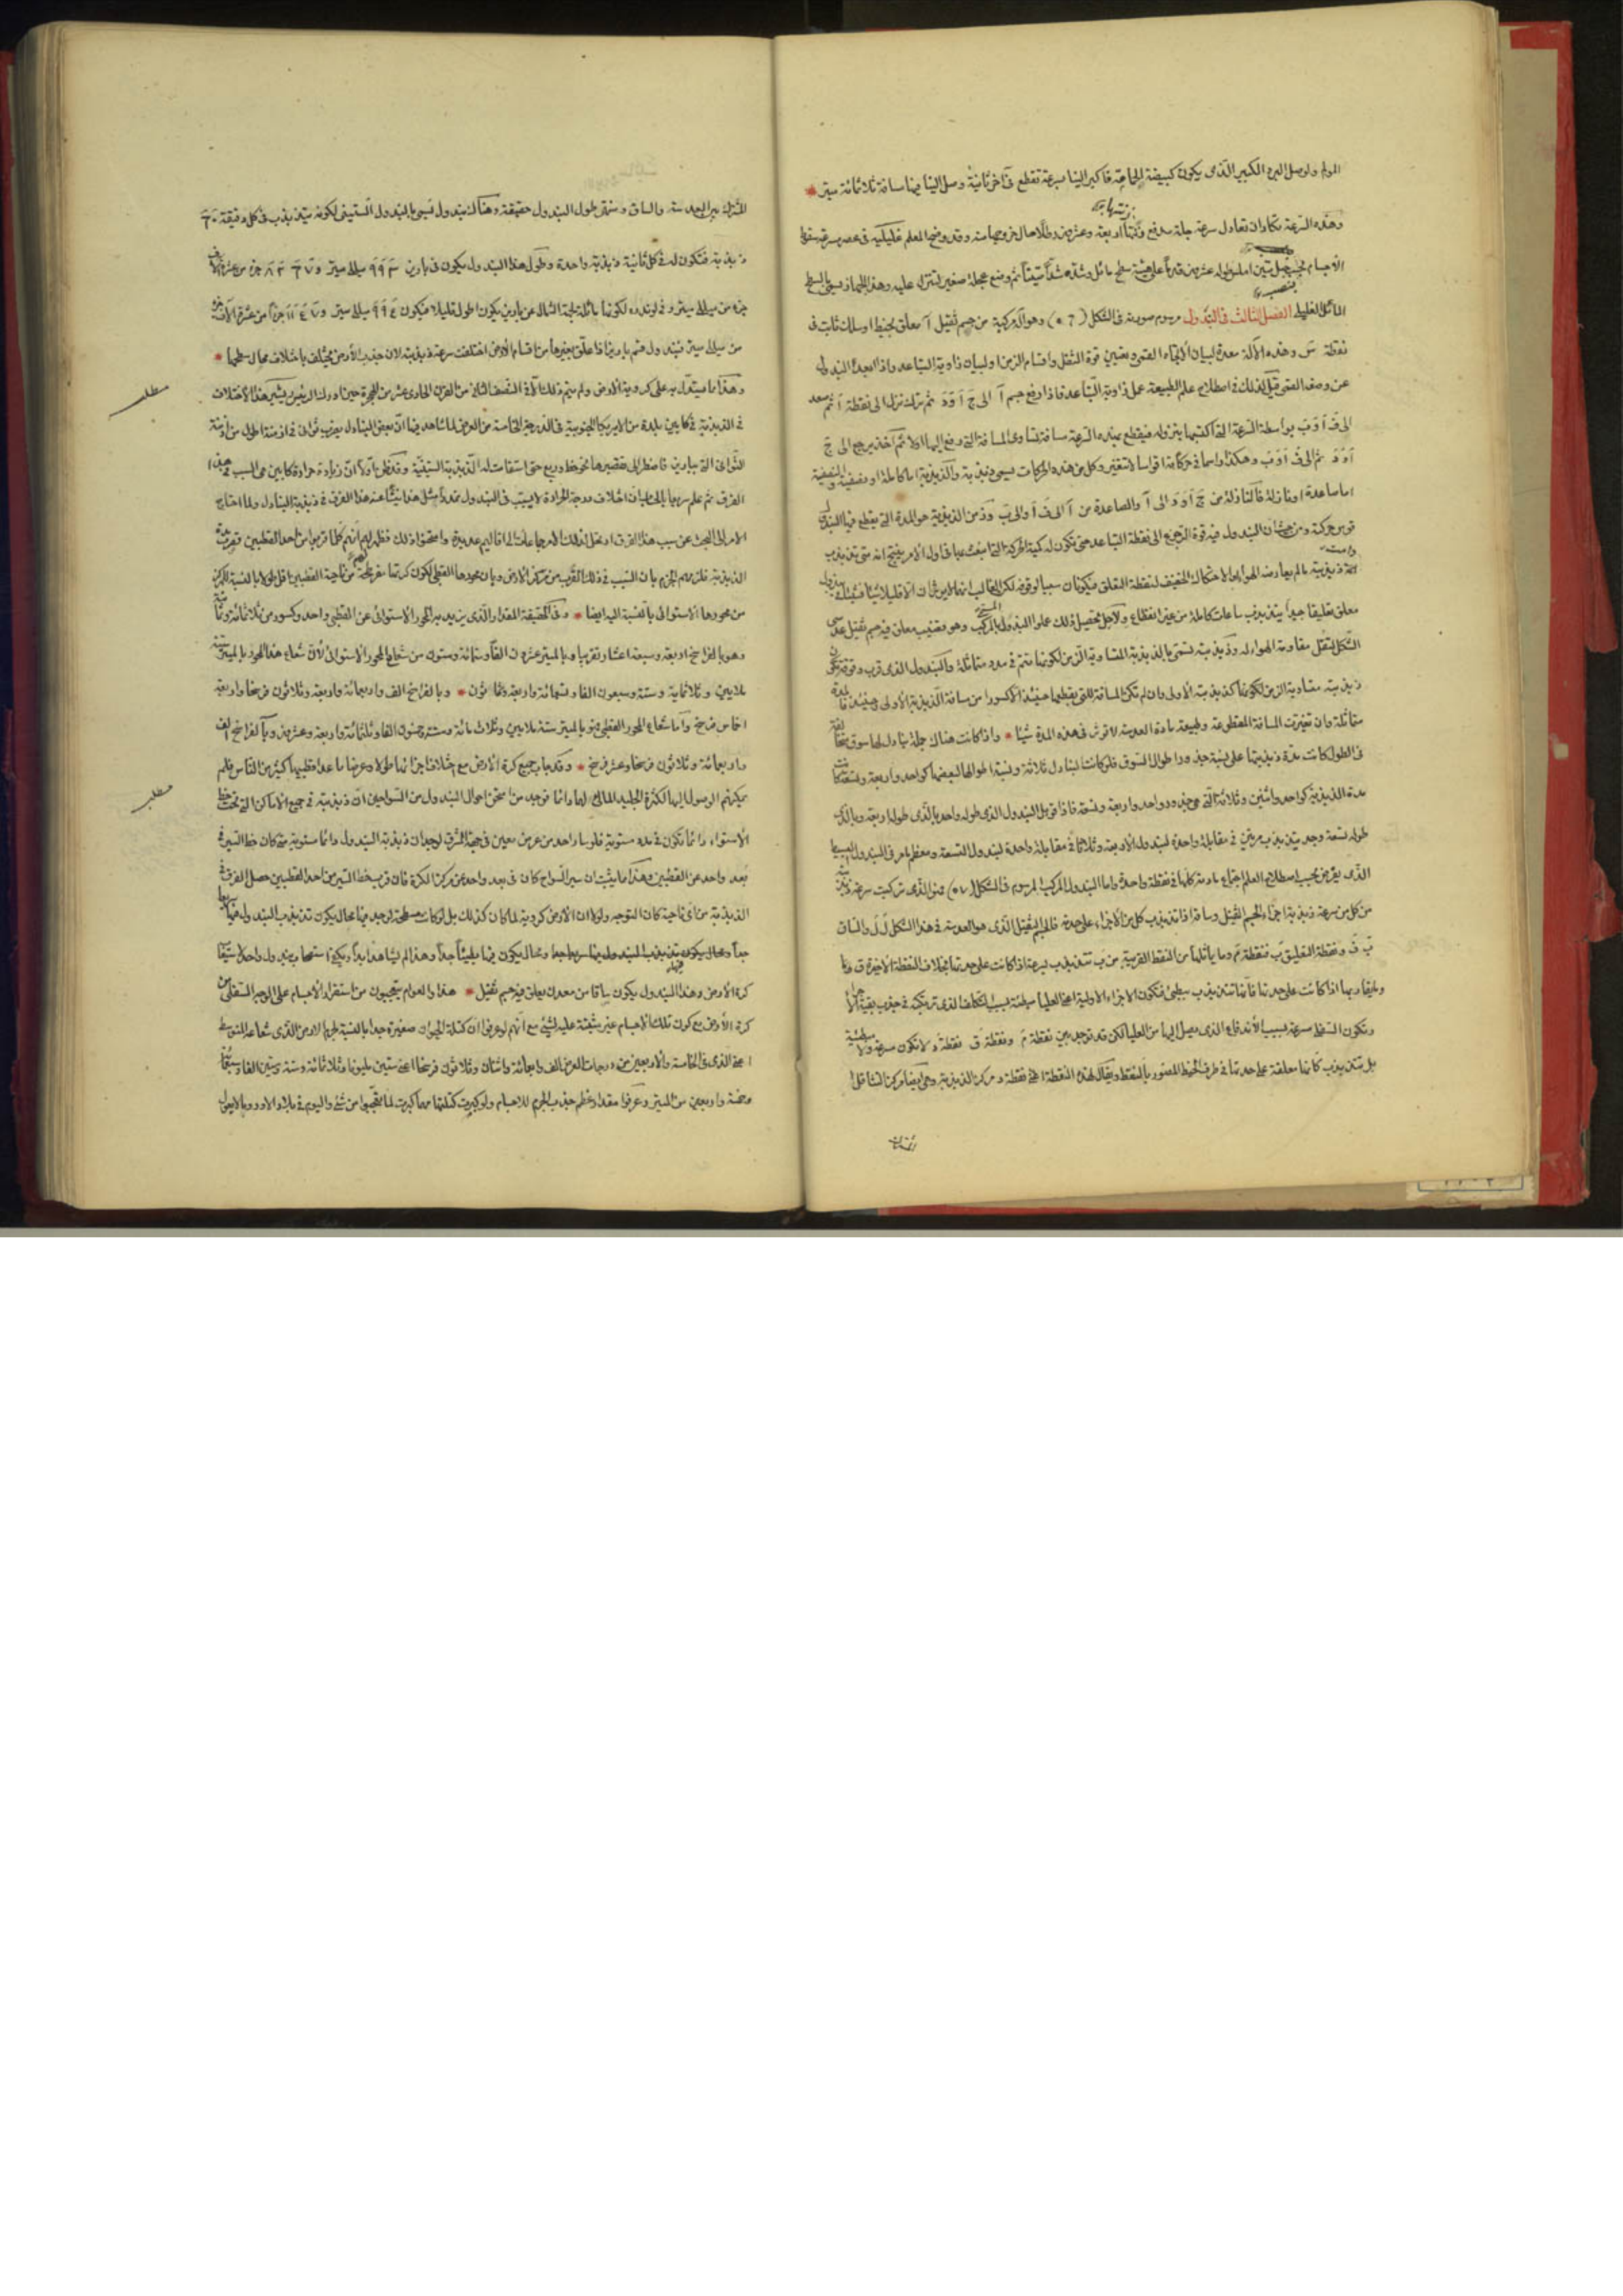 المولم ولو وصل البرد الكبير الذى يكون كبيضة الحمامة فاكبر الينا بسرعة تقطع فى آخر ثانية وصل الينا فيها مسافة ثلاثمائة ميتر
وهذه السرعة تكاد ان تعادل سرعة جلة مدفع اربعة وعشرين رطلا حال خروجها منه وقد وضح المعلم غليليه فى عصره سرعة سقوط
الاجسام املس طوله عشرين قدما على هيئة سطح مائل وشده شدا متينا ثم وضع عجلة صغير لتنزل عليه وهذا الجهاز يسمى بالسطح
المائل الغليلى الفصل الثالث فى البندول مرسوم صورته فى الشكل (٦٠) وهو آلة مركبة من جسم ثقيل آ معلق بخيط او سلك ثابت فى
نقطة س وهذه الآلة معدة لبيان الاتجاه العمودى وتعيين قوة الثقل واقسام الزمن او لبيان زاوية التباعد واذا ابعد البندول
عن وصفه العمودى قيل لذلك فى اصطلاح علم الطبيعة عمل زاوية التباعد فاذا رفع جسم آ الى ج آ و د ثم ترك نزل الى نقطة آ ثم صعد
الى ف آ و ب بواسطة السرعة التى اكتسبها بنزوله فيقطع بهذه السرعة مسافة تساوى المسافة التى رفع اليها اولا ثم آخذ يرجع الى ج
آ و د ثم الى ف آ و ب وهكذا راسما فى حركاته اقواسا لا تتغير وكل من هذه الحركات يسمى ذبذبة والذبذبة اما كاملة او نصفية والنصفية
اما صاعدة او نازلة فالنازلة من ج آ و د الى آ والصاعدة من آ الى ف آ والى ب وزمن الذبذبة هو المدة التى يقطع فيها البندول
قوس حركته ومن حيث ان البندول فيه قوة الترجيع الى نقطة التباعد حتى تكون له كمية الحركة التى انبعث بها فى اول الامر ينتج انه متى تذبذب
ذبذبته مالم يعارضه الهواء او الاحتكاك الخفيف لنقطة التعلق فيكونان سببا لوقوفه لكن الغالب انهما لا يؤثران الا قليلا شيئا فشيئا فى بندول
معلق تعليقا جيدا يتذبذب ساعات كاملة من غير انقطاع ولاجل تحصيل ذلك عملوا البندول المسمى بالمركب وهو قضيب معلق فيه جسم ثقيل عدسى
الشكل لتقل مقاومة الهواء له وذبذبته تسمى بالذبذبة المتساوية الزمن لكونها تتم فى مدد متماثلة والبندول الذى قرب وقوفه تكون
ذبذبته متساوية الزمن لكونها كذبذبته الاولى وان لم تكن المسافة التى يقطعها حينئذ الا كسورا من مسافة الذبذبة الاولى وحينئذ فالمدة
متماثلة وان تغيرت المسافة المقطوعة وطبيعة مادة العدسة لا تؤثر فى هذه المدة شيئا واذا كانت هناك جملة بنادل لها سوق مختلفة
فى الطول كانت مدة ذبذبتها على نسبة جذور اطوال السوق فلو كانت البنادل ثلاثة ونسبة اطوالها لبعضها كواحد واربعة وتسعة كانت
مدة الذبذبة كواحد واثنين وثلاثة التى هى جذور واحد واربعة وتسعة فاذا قوبل البندول الذى طوله واحد بالذى طوله اربعة وبالذى
طوله تسعة وجد يتذبذب مرتين فى مقابلة واحدة لبندول الاربعة وثلاثا فى مقابلة واحدة لبندول التسعة ومعظم ما مر فى البندول البسيط
الذى يفرض بحسب اصطلاح العلم اجتماع مادته كلها فى نقطة واحدة واما البندول المركب المرسوم فى الشكل (٧٠) فهو الذى تركبت سرعة ذبذبته
من كل من سرعة ذبذبة اجزاء الجسم الثقيل وساقه اذا تذبذب كل من الاجزاء على حدته فالجسم الثقيل الذى هو العدسة فى هذا الشكل ل ل والساق
ب ف ونقطة التعليق ب فنقطة م وما يماثلها من النقط القريبة من ب تتذبذب بسرعة اذا كانت على حدتها بخلاف النقطة الاخيرة ق وما
يقاربها اذا كانت على حدتها فانها تتذبذب ببطئ فتكون الاجزاء الاولية اعنى العليا بطيئة بسبب التكلف الذى ترتكبه فى جذب بقية الاجزاء
وتكون السفلى سريعة بسبب الاندفاع الذى يصل اليها من العليا لكن قد توجد بين نقطة م ونقطة ق نقطة و لا تكون سريعة ولا بطيئة
بل تتذبذب كانها معلقة على حدتها فى طرف الخيط المصور بالنقط ويقال لهذه النقطة اعنى نقطة و مركز الذبذبة وهى ايضا مركز التثاقل
المشترك بين العدسة والساق ومنتهى طول البندول حقيقة وهناك بندول يسمى بالبندول الستينى لكونه يتذبذب فى كل دقيقة ٦٠
ذبذبة فتكون له فى كل ثانية ذبذبة واحدة وطول هذا البندول يكون فى باريز ٩٩٣ ميللى ميتر
جزء من ميللى ميتر وفى لوندره لكونها مائلة لجهة الشمال عن باريز يكون اطول قليلا فيكون ٩٩٤ ميللى ميتر
من ميللى ميتر فبندول قسم باريز اذا علق بغيرها من اقسام الارض اختلفت سرعة ذبذبته لان جذب الارض يختلف باختلاف محال سطحها
مطلب
وهذا ما يستدل به على كروية الارض ولم يتم ذلك الا فى النصف الثانى من القرن الحادى عشر من الهجرة حين ادرك الرئيس ريشير هذا الاختلاف
فى الذبذبة فى كايين بلدة من الامريكا الجنوبية فى الدرجة الخامسة من العرض لما شاهد فيها ان بعض البنادل يضرب ثوانى فى ازمنة اطول من ازمنة
الثوانى التى بباريز فاضطر الى تقصيرها نحو خط وربع حتى استقامت له الذبذبة الستينية وقد ظن اولا ان زيادة حرارة كايين هى السبب فى هذا
الفرق ثم علم سريعا بالحساب ان اختلاف درجة الحرارة لا يسبب فى البندول تمددا مثل هذا ينشأ عنه هذا الفرق فى ذبذبة البنادل ولما احتاج
الامر الى البحث عن سبب هذا الفرق ارتحل لذلك الى اقاليم عديدة وامتحنوا ذلك فظهر لهم انهم كلما قربوا من احد القطبين
الذبذبة فلزمهم الجزم بان السبب فى ذلك القرب من مركز الارض وبان محورها القطبى لكون كرتها مفرطحة من ناحية القطبين اقل طولا بالنسبة للمركز
من محورها الاستوائى بالنسبة اليه ايضا وفى الحقيقة المقدار الذى يزيد به المحور الاستوائى عن القطبى واحد وكسور من ثلاثمائة
وهو بالفراسخ اربعة وسبعة اعشار تقريبا وبالميتر عشرون الفا وستمائة وستون من شعاع المحور الاستوائى لان شعاع هذا المحور بالميتر ستة
ملايين وثلاثمائة وستة وسبعون الفا وتسعمائة واربعة وثمانون وبالفراسخ الف واربعمائة واربعة وثلاثون فرسخا واربعة
اخماس فرسخ واما شعاع المحور القطبى فهو بالميتر ستة ملايين وثلاث مائة وستة وخمسون الفا وثلثمائة واربعة وعشرين وبالفراسخ الف
واربعمائة وثلاثون فرسخا وعشر فرسخ وقد جاب جميع كرة الارض مع اختلاف اجزائها طولا وعرضا ما عدا قطبيها كثير من الناس فلم
مطلب
يمكنهم الوصول اليها لكثرة الجليد المالئ لها دائما فوجد من امتحن احوال البندول من السواحين ان ذبذبته فى جميع الاماكن التى تحت خط
الاستواء دائما تكون فى مدد مستوية فلو سار احد من عرض معين فى جهة الشرق لوجد ان ذبذبة البندول دائما مستوية متى كان خط السير فى
بعد واحد عن القطبين وهكذا مما يثبت ان سير السواح كان فى بعد واحد عن مركز الكرة فان قرب خط السير من احد القطبين حصل الفرق فى
الذبذبة من اى ناحية كان التوجه ولولا ان الارض كروية لما كان كذلك بل لو كانت مسطحة لوجد فيها محال يكون تذبذب البندول فيها سريعا
جدا ومحال يكون فيها بطيئا جدا وهذا لم يشاهد ابدا ويكفى امتحان بندول واحد لاستيفاء
كرة الارض وهذا البندول يكون ساقا من معدن يعلق فيه جسم ثقيل هذا والعوام يتعجبون من استقرار الاجسام على الوجه السفلى من
كرة الارض مع كون تلك الاجسام غير مثبتة عليه بشئ مع انهم لو عرفوا ان كتلة الحيوان صغيرة جدا بالنسبة لجرم الارض الذى شعاعه المتوسط
اعنى الذى فى الخامسة والاربعين من درجات العرض الف واربعمائة واثنان وثلاثون فرسخا اعنى ستين مليونا وثلاثمائة وستة وستين الفا وسبعمائة
وخمسة واربعين من الميتر وعرفوا مقدار عظم جذب الجرم للاجسام ولو كبرت كتلتها مهما كبرت لما تعجبوا من شئ واليوم فى بلاد الاوروبا